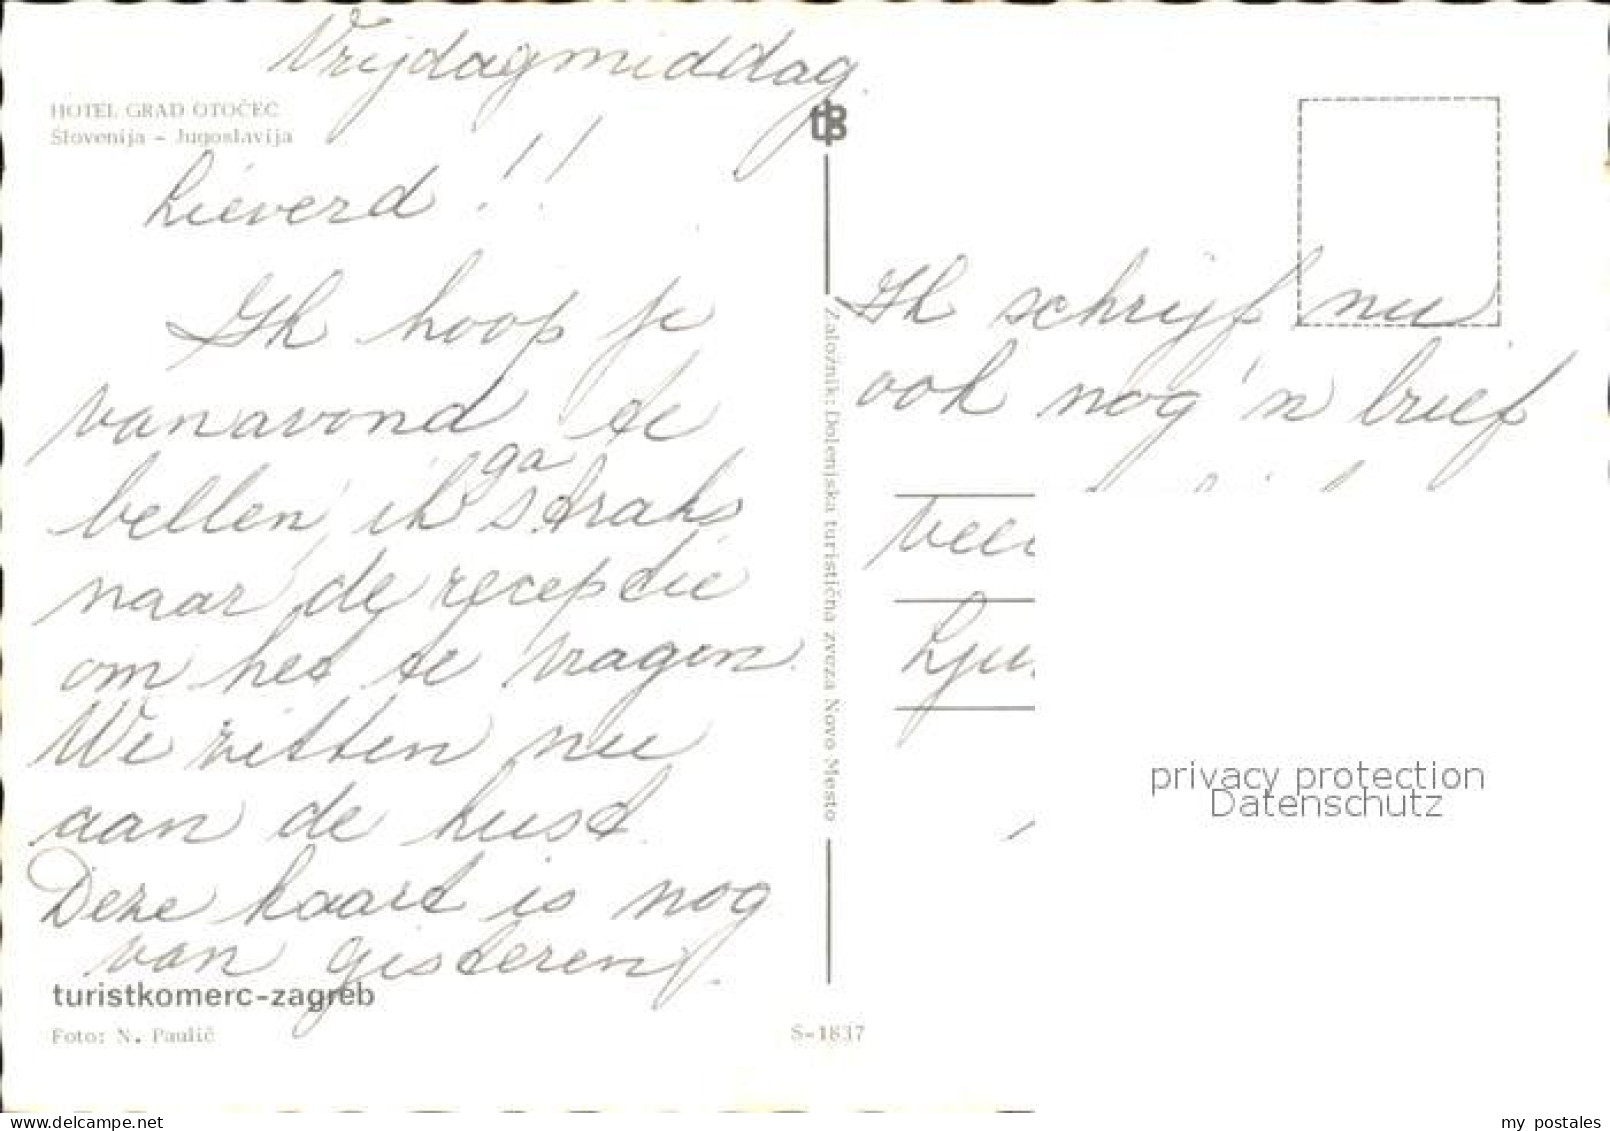 Vrijdagmiddag
HOTEL GRAD OTOČEC
Slovenija - Jugoslavija
Lieverd !!
Ik hoop je
vanavond te
bellen, ik ga straks
naar de receptie
om het te vragen.
We zitten nu
aan de kust.
Deze kaart is nog
van gisteren.
turistkomerc-zagreb
Foto: N. Paulič
S-1837
Založnik: Dolenjska turistična zveza Novo Mesto
Ik schrijf nu
ook nog 'n brief
privacy protection
Datenschutz
my postales
www.delcampe.net